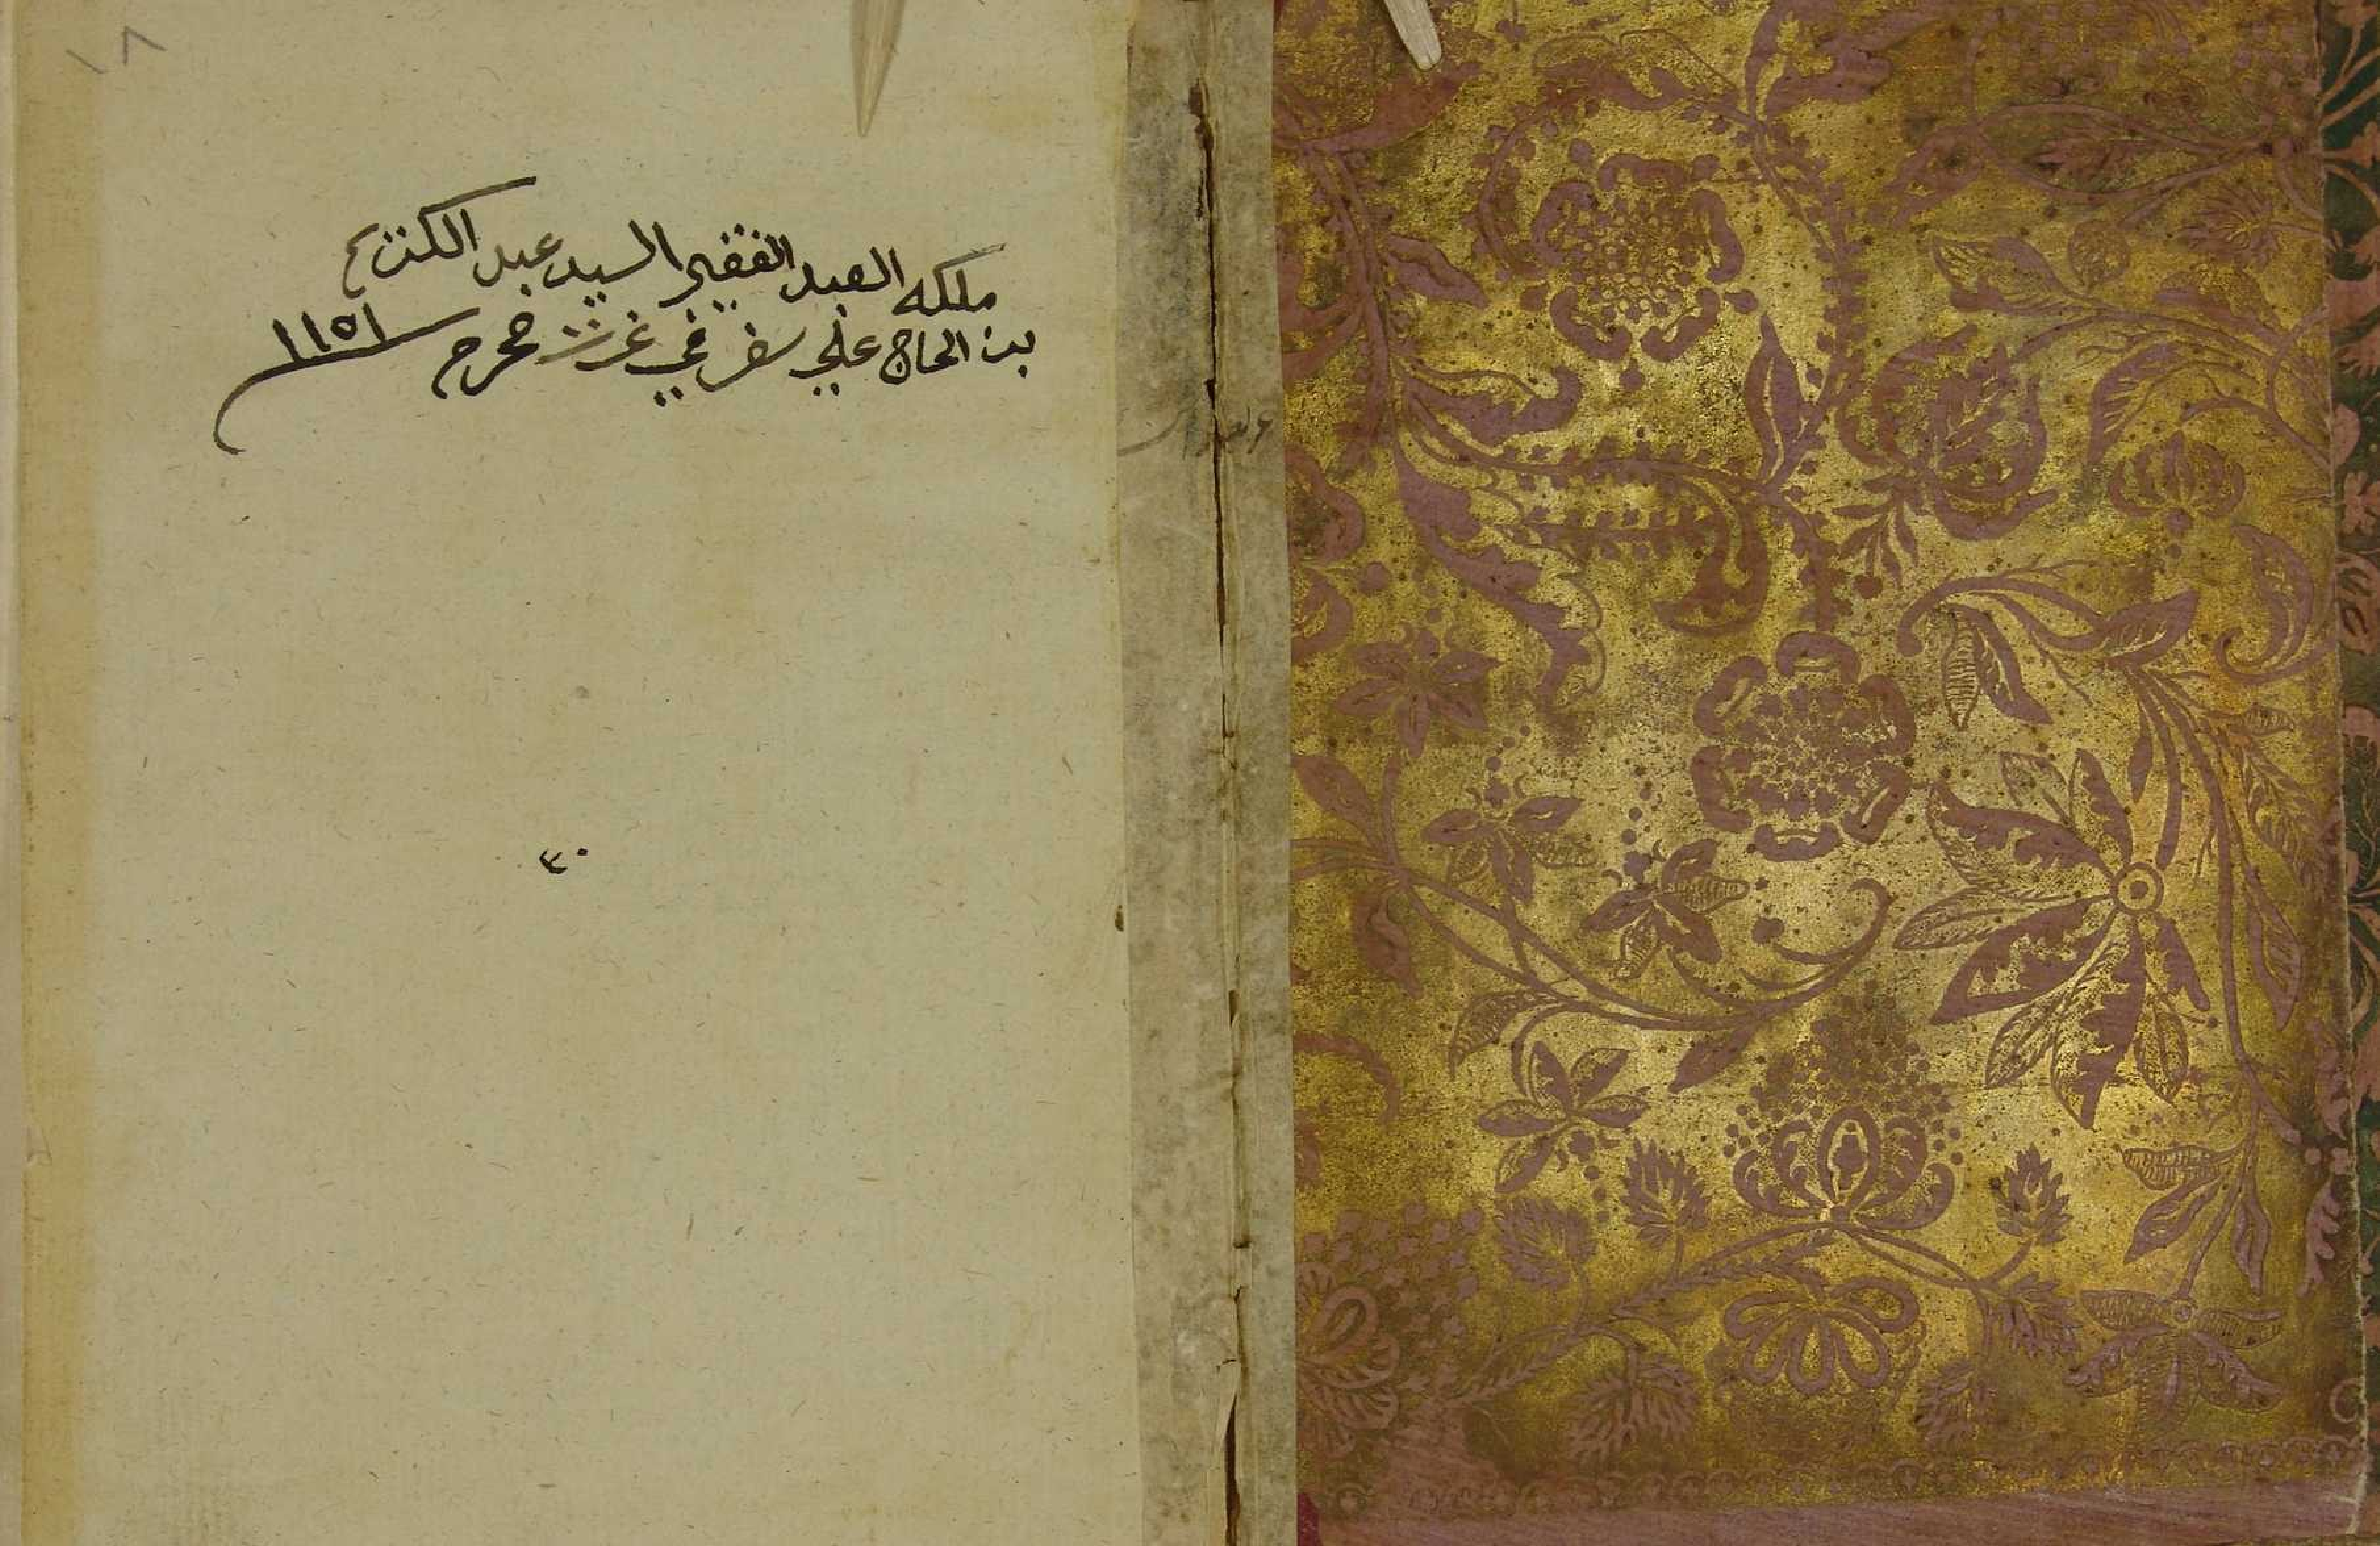 ١٨
ملكه العبد الفقير السيد عبد الكريم
بن الحاج علي سفر في غرة محرم سنة ١١٥١
٣٠